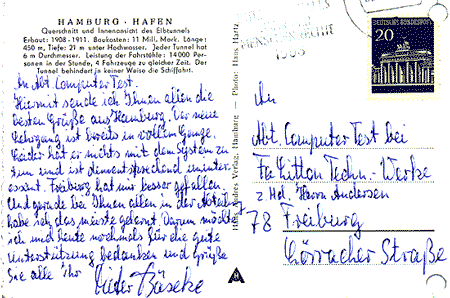 HAMBURG · HAFEN
Querschnitt und Innenansicht des Elbtunnels
Erbaut: 1908-1911. Baukosten: 11 Mill. Mark. Länge:
450 m, Tiefe: 21 m unter Hochwasser. Jeder Tunnel hat
6 m Durchmesser. Leistung der Fahrstühle: 14000 Per-
sonen in der Stunde, 4 Fahrzeuge zu gleicher Zeit. Der
Tunnel behindert in keiner Weise die Schiffahrt.
An Abt. Computer Test.
Hiermit sende ich Ihnen allen die
besten Grüße aus Hamburg. Der neue
Lehrgang ist bereits in vollem Gange.
Leider hat er nichts mit dem System zu
tun und ist dementsprechend uninter-
essant. Freiburg hat mir besser gefallen.
Und gerade bei Ihnen allen in der Abteilung
habe ich das meiste gelernt. Darum möchte
ich mich heute nochmals für die gute
Unterstützung bedanken und grüße
Sie alle Ihr
Dieter
Verlag, Hamburg — Photo: Hans Hartz
DEUTSCHE BUNDESPOST
20
An
Abt. Computer Test bei
Fa Litton Techn. Werke
z. Hd. Herrn Andersen
78 Freiburg
Lörracher Straße